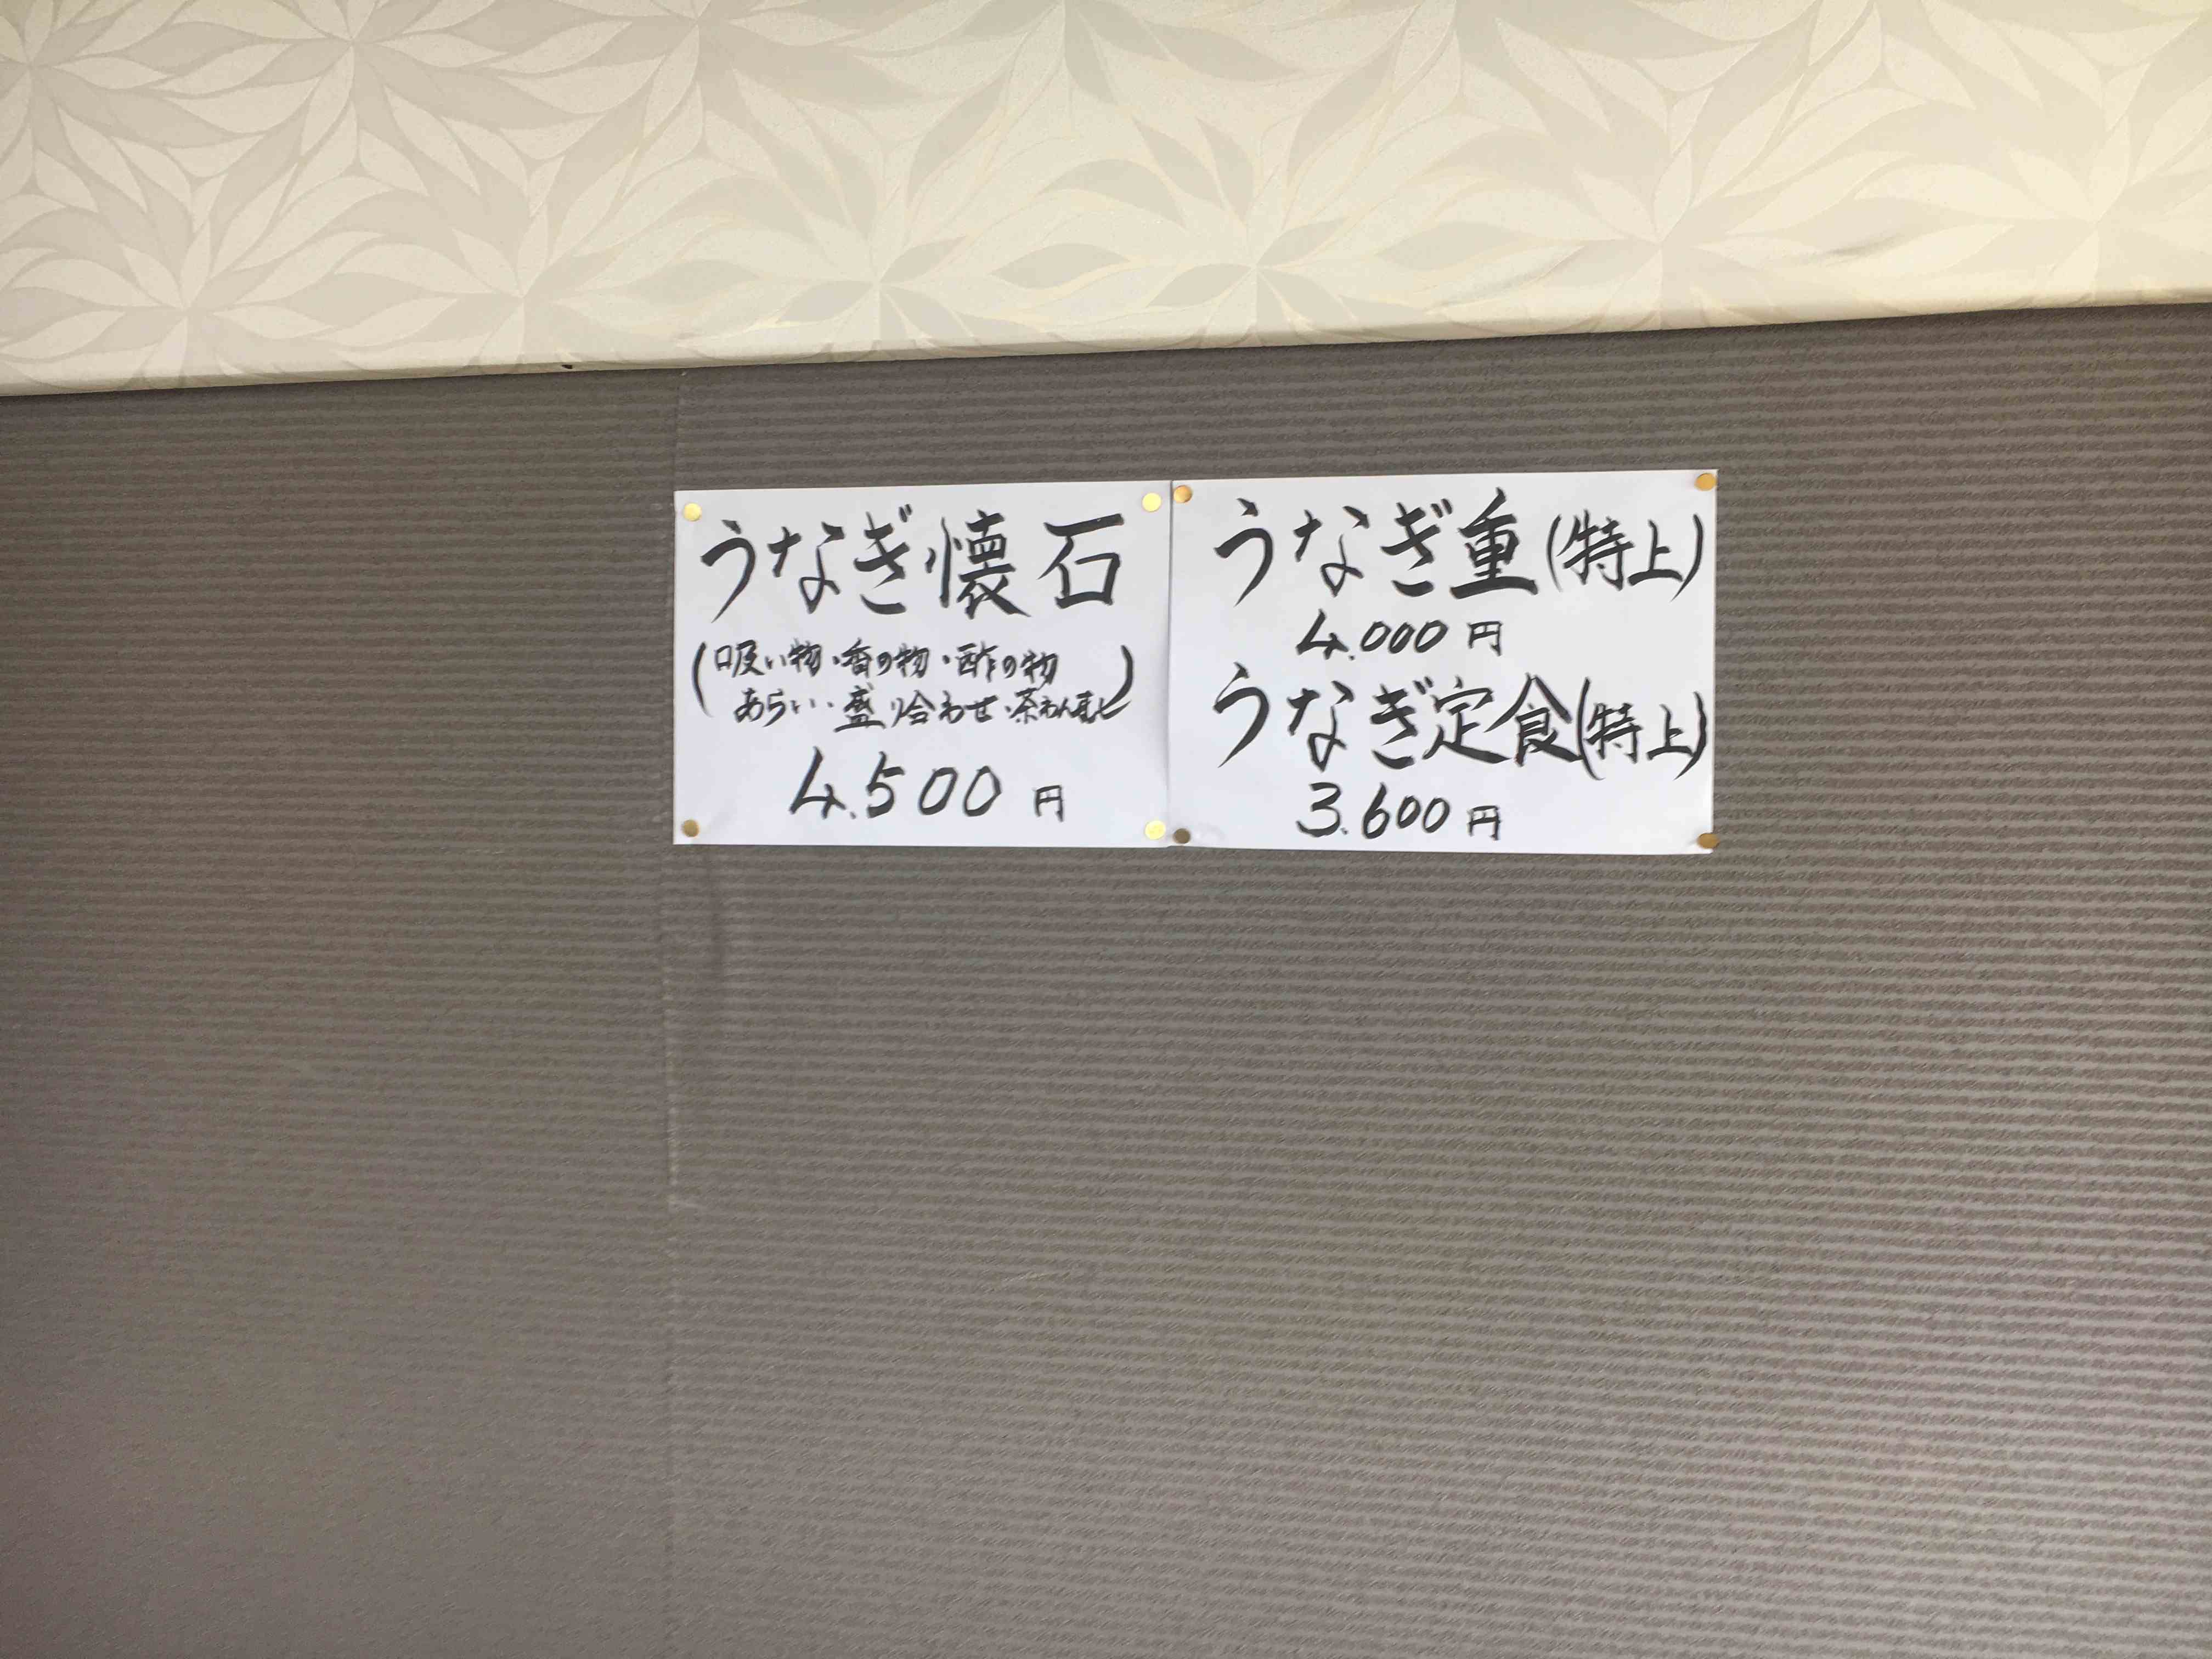 うなぎ懐石
(吸い物・香の物・酢の物
あらい・盛り合わせ・茶わんむし)
4.500円
うなぎ重(特上)
4.000円
うなぎ定食(特上)
3.600円